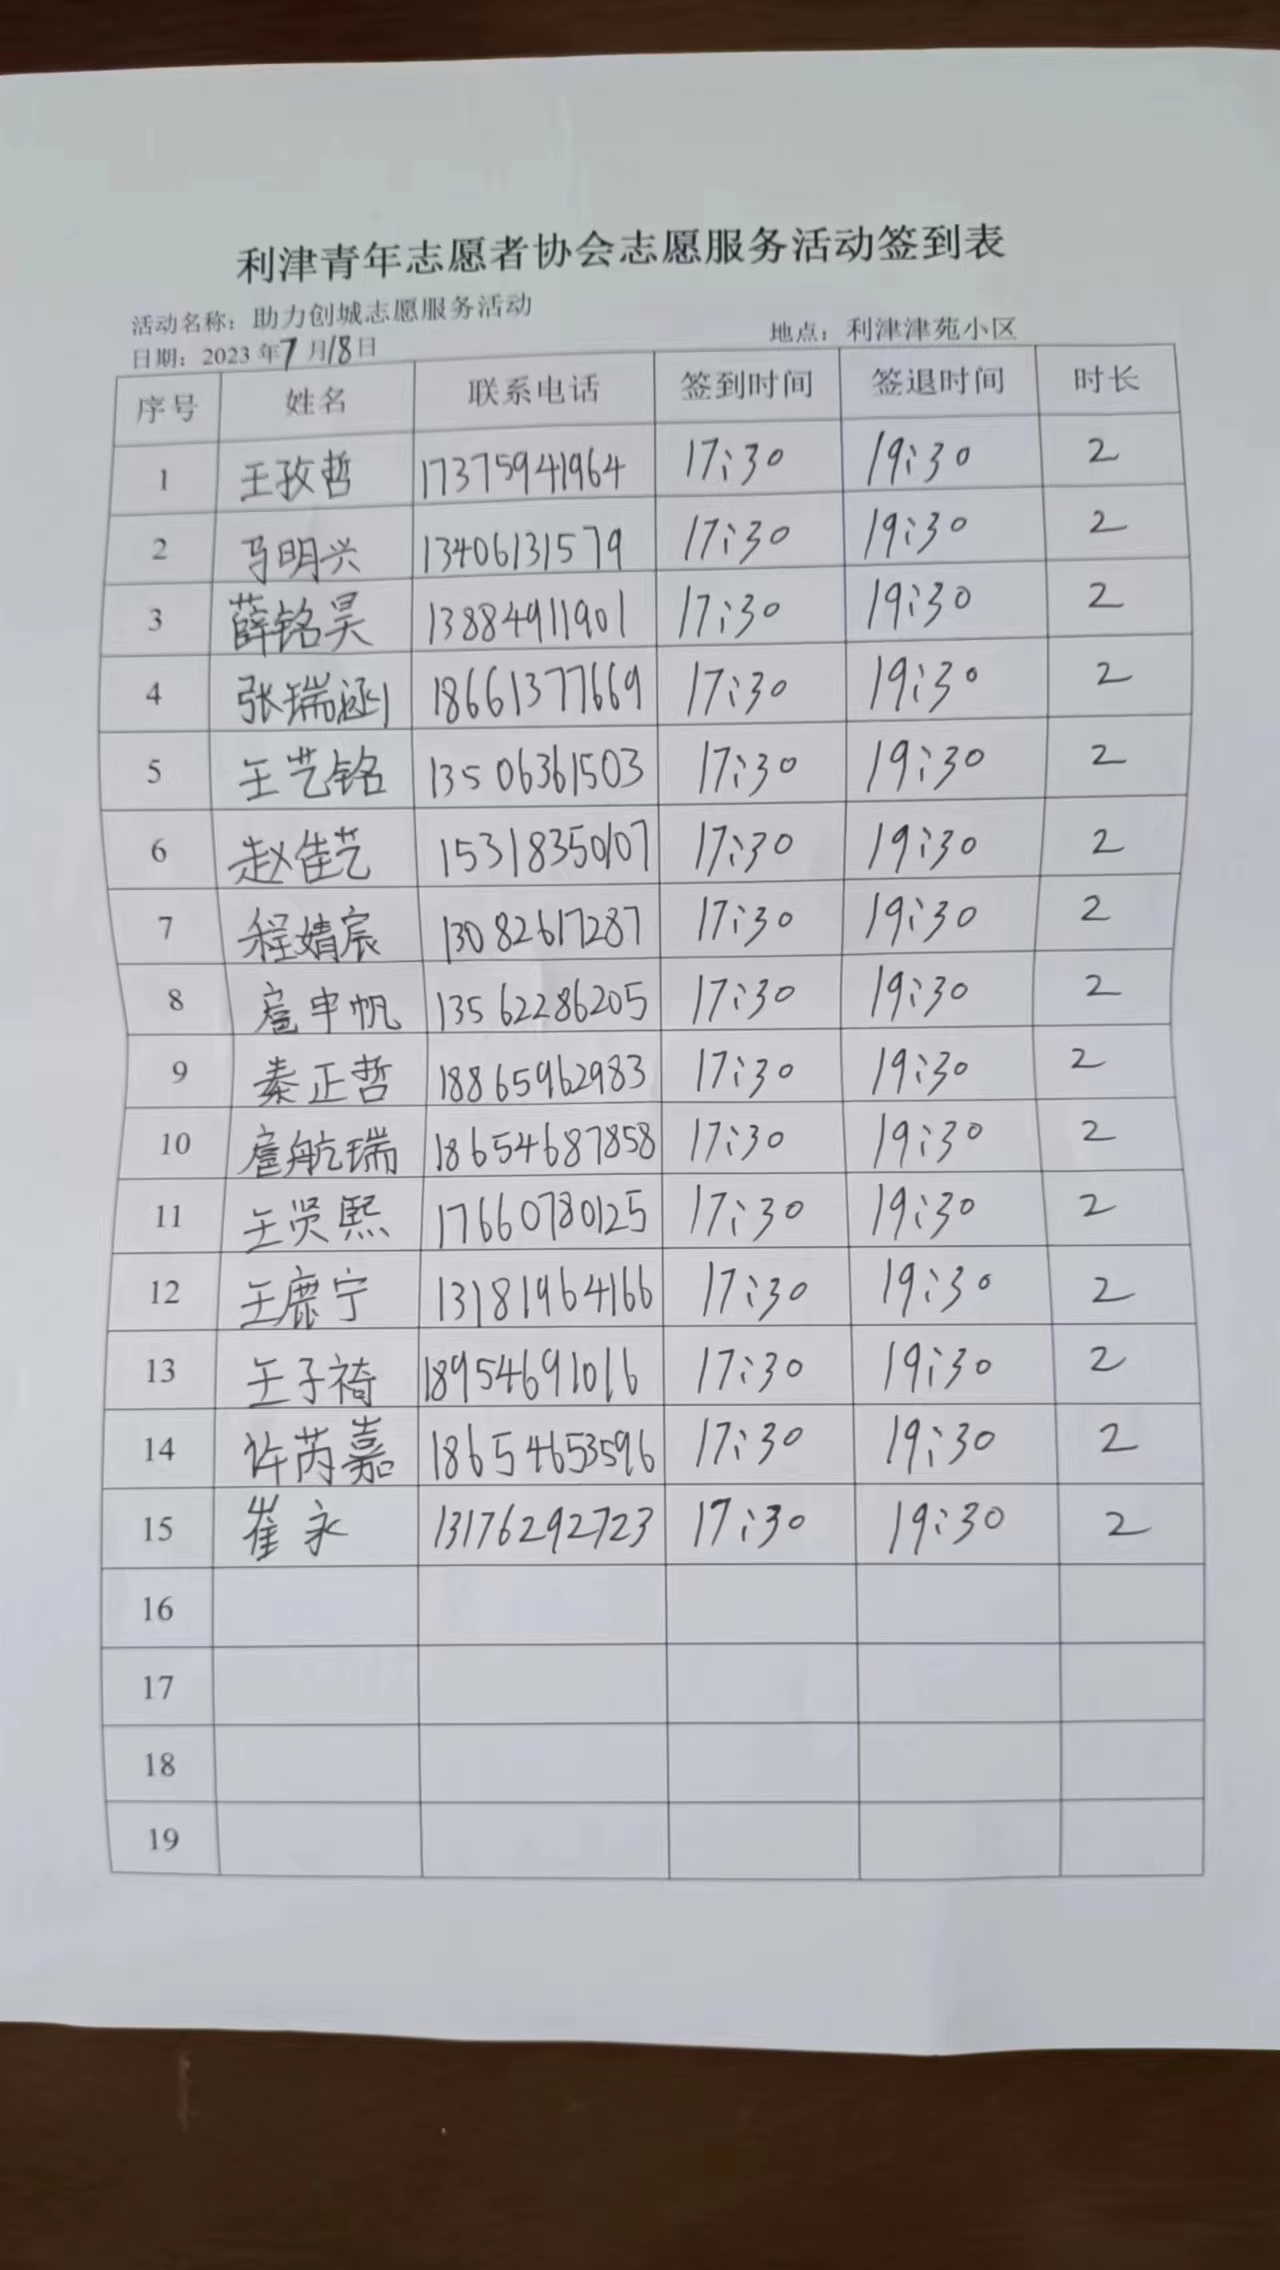 利津青年志愿者协会志愿服务活动签到表
活动名称：助力创城志愿服务活动
日期：2023年7月18日 地点：利津津苑小区
序号 姓名 联系电话 签到时间 签退时间 时长
1 王孜哲 17375941964 17:30 19:30 2
2 马明兴 13406131579 17:30 19:30 2
3 薛铭昊 13884911901 17:30 19:30 2
4 张瑞涵 18661377669 17:30 19:30 2
5 王艺铭 13506361503 17:30 19:30 2
6 赵佳艺 15318350107 17:30 19:30 2
7 程婧宸 13082617287 17:30 19:30 2
8 扈申帆 13562286205 17:30 19:30 2
9 秦正哲 18865962983 17:30 19:30 2
10 扈航瑞 18654687858 17:30 19:30 2
11 王贤熙 17660780125 17:30 19:30 2
12 王鹿宁 13181964166 17:30 19:30 2
13 王子裿 18954691016 17:30 19:30 2
14 许芮嘉 18654653596 17:30 19:30 2
15 崔永 13176292723 17:30 19:30 2
16
17
18
19